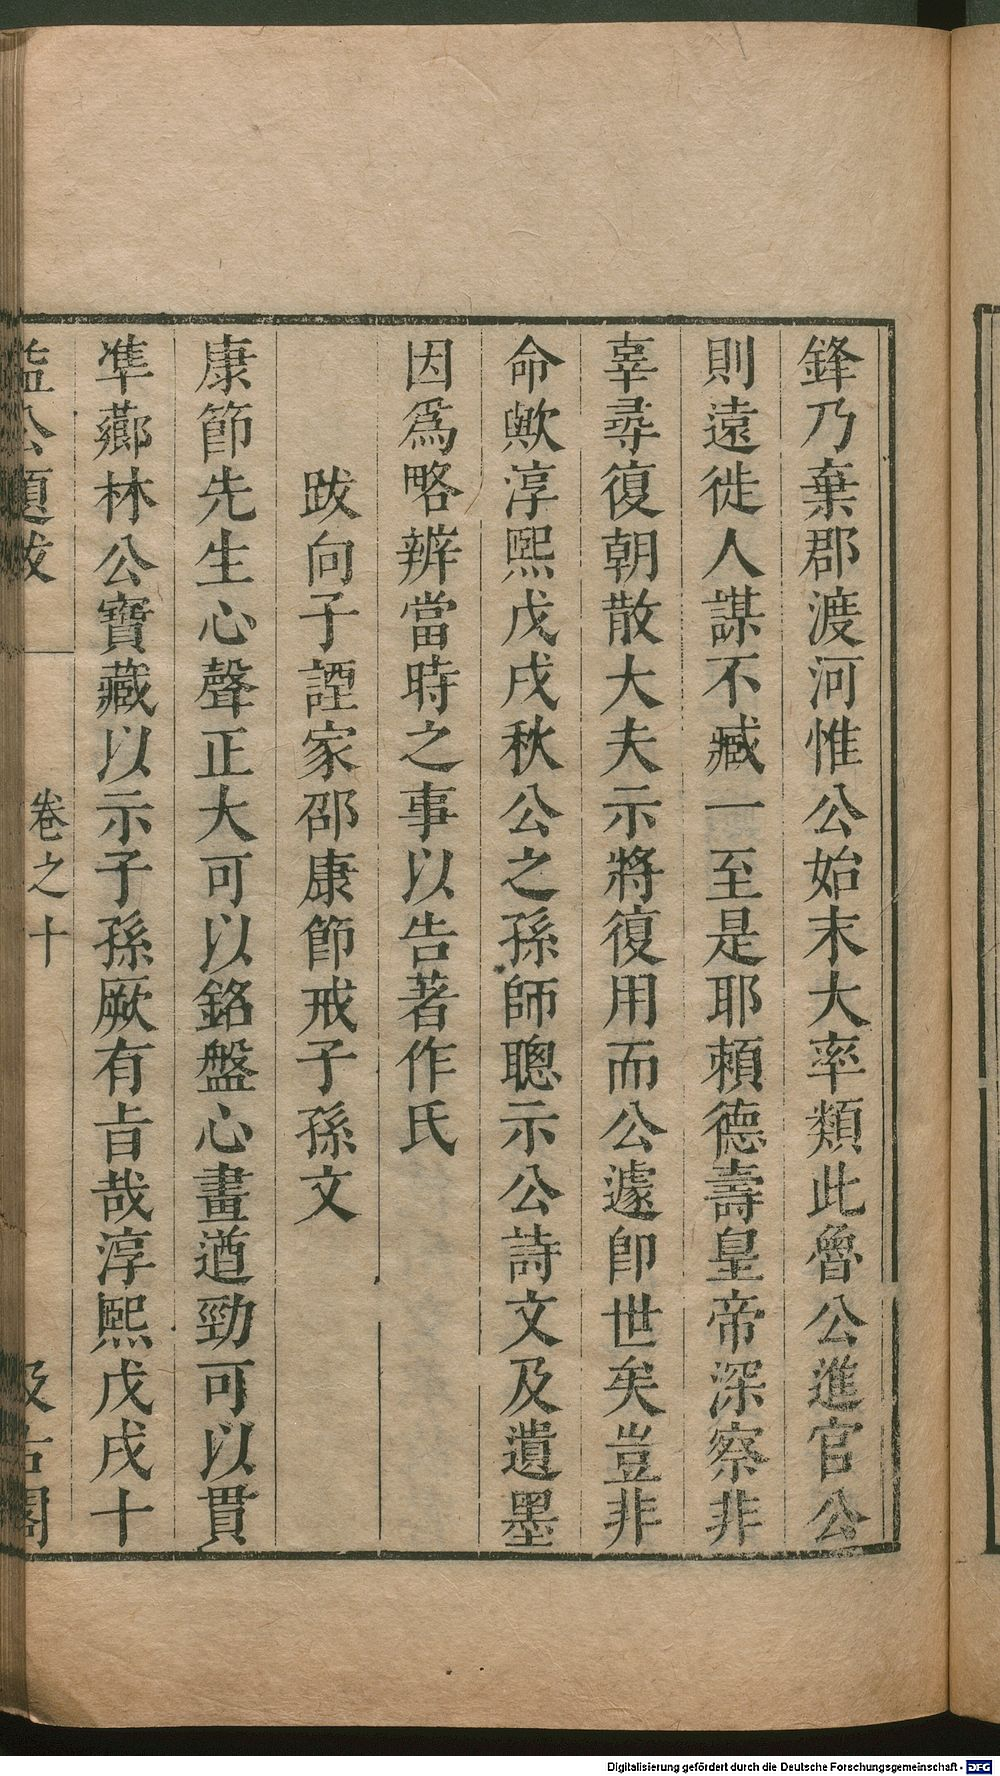 鋒乃棄郡渡河惟公始末大率類此魯公進官公
則遠徙人謀不臧一至是耶頼德壽皇帝深察非
辜尋復朝散大夫示將復用而公遽卽世矣豈非
命歟淳熙戊戌秋公之孫師聰示公詩文及遺墨
因爲略辨當時之事以告著作氏
跋向子諲家邵康節戒子孫文
康節先生心聲正大可以銘盤心畫遒勁可以貫
隼薌林公寶藏以示子孫厥有旨哉淳熙戊戌十
益公題跋
卷之十
汲古閣
Digitalisierung gefördert durch die Deutsche Forschungsgemeinschaft - DFG